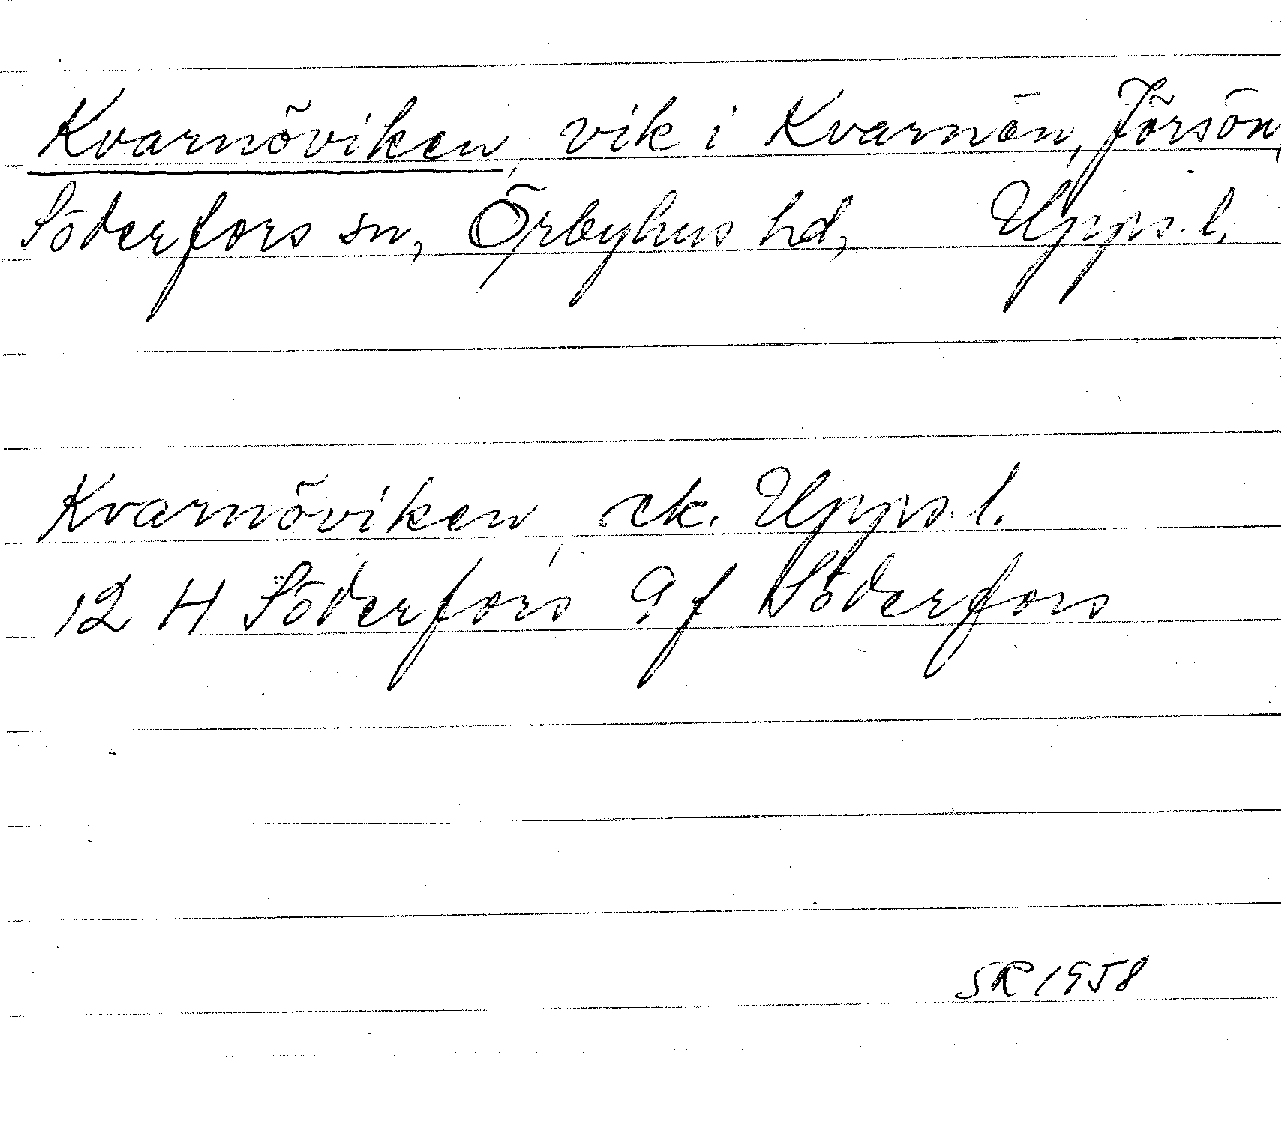 Kvarnöviken, vik i Kvarnön, Jörsön,
Söderfors sn, Örbyhus hd, Upps. l.
Kvarnöviken, ek. Upps. l.
12 H Söderfors 9 f Söderfors
SR 1958